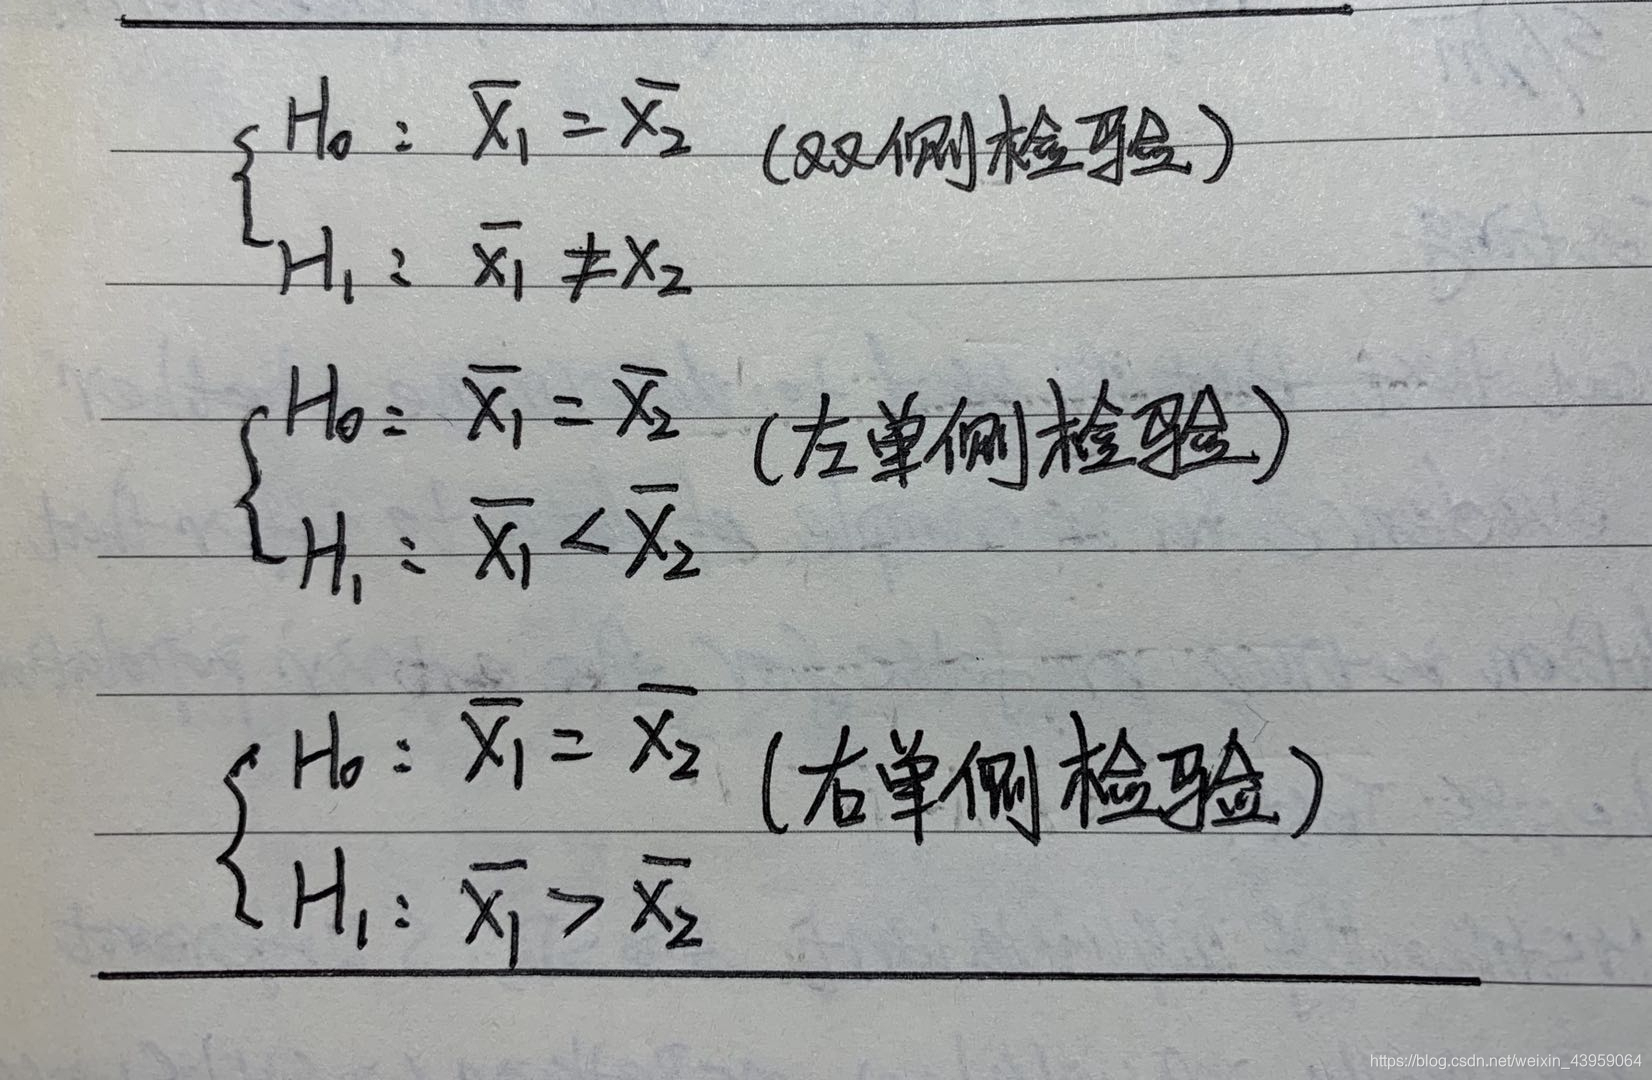 H₀: X̄₁ = X̄₂ (双侧检验)
H₁: X̄₁ ≠ X₂
H₀: X̄₁ = X̄₂ (左单侧检验)
H₁: X̄₁ < X̄₂
H₀: X̄₁ = X̄₂ (右单侧检验)
H₁: X̄₁ > X̄₂
https://blog.csdn.net/weixin_43959064